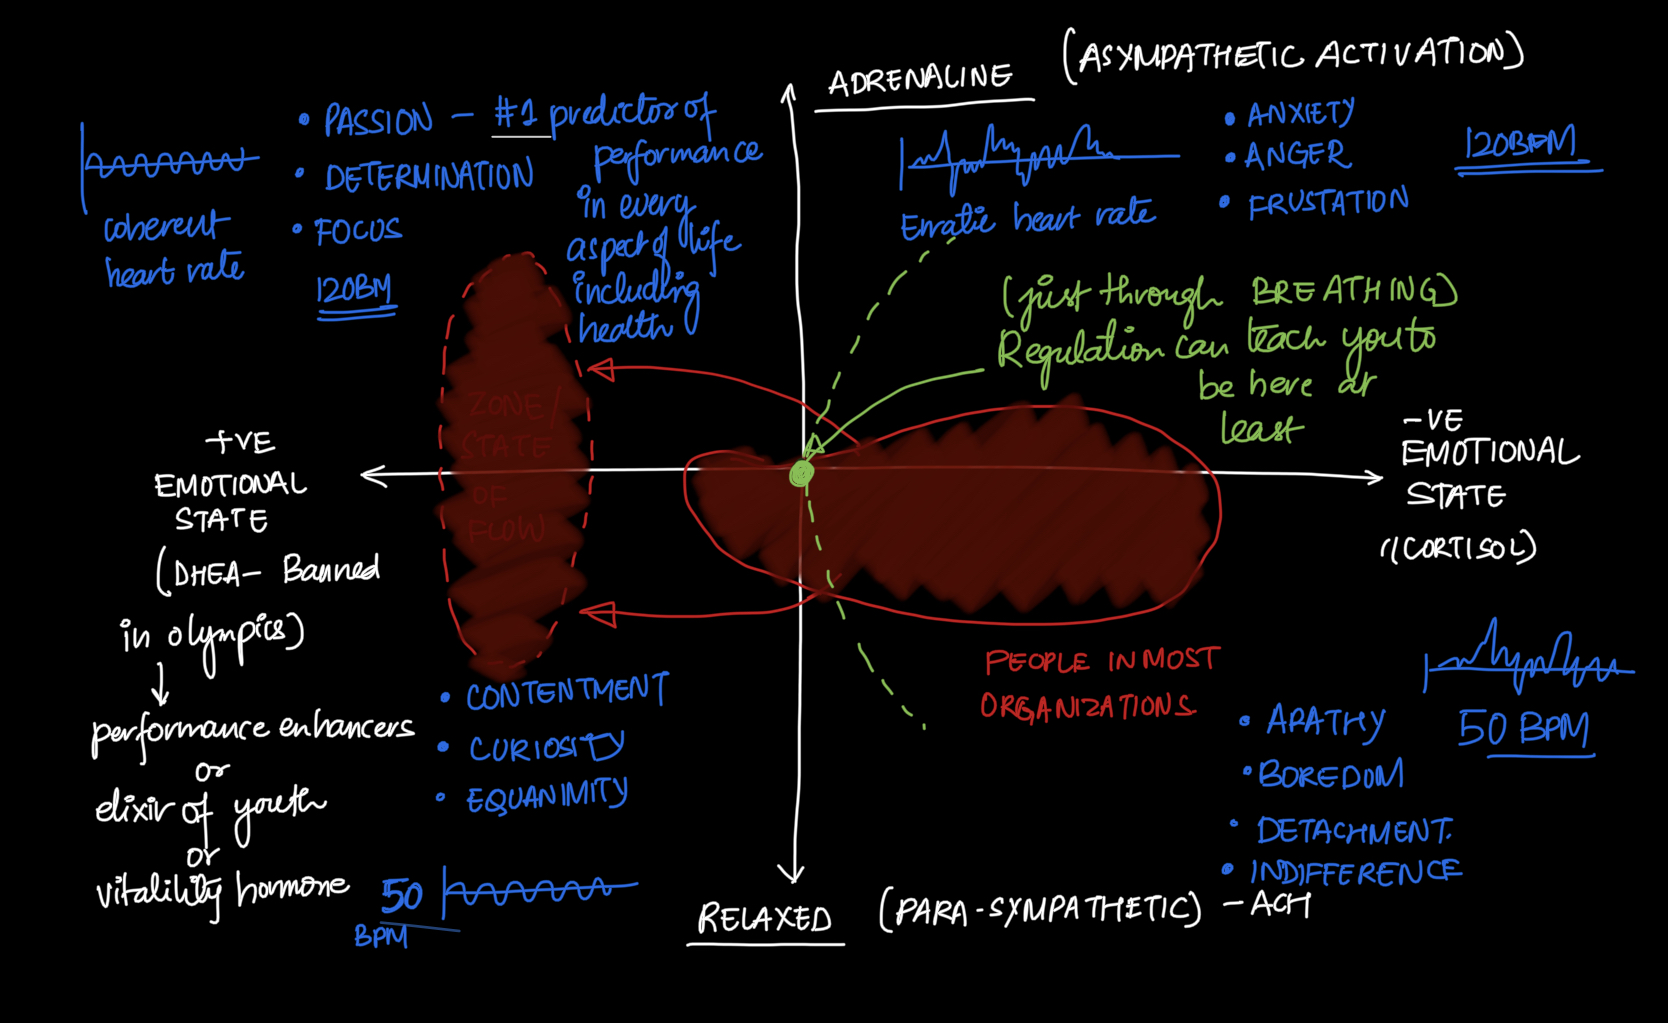 ADRENALINE (ASYMPATHETIC ACTIVATION)
• PASSION – #1 predictor of
performance
in every
aspect of life
including
health
• DETERMINATION
• FOCUS
120BM
coherent
heart rate
Erratic heart rate
• ANXIETY
• ANGER
• FRUSTATION
120BPM
(just through BREATHING)
Regulation can teach you to
be here at
least
ZONE/
STATE
OF
FLOW
+VE
EMOTIONAL
STATE
(DHEA– Banned
in olympics)
performance enhancers
or
elixir of youth
or
vitality hormone
-VE
EMOTIONAL
STATE
(CORTISOL)
PEOPLE IN MOST
ORGANIZATIONS
• CONTENTMENT
• CURIOSITY
• EQUANIMITY
50
BPM
• APATHY
• BOREDOM
• DETACHMENT.
• INDIFFERENCE
50 BPM
RELAXED (PARA-SYMPATHETIC) – ACH